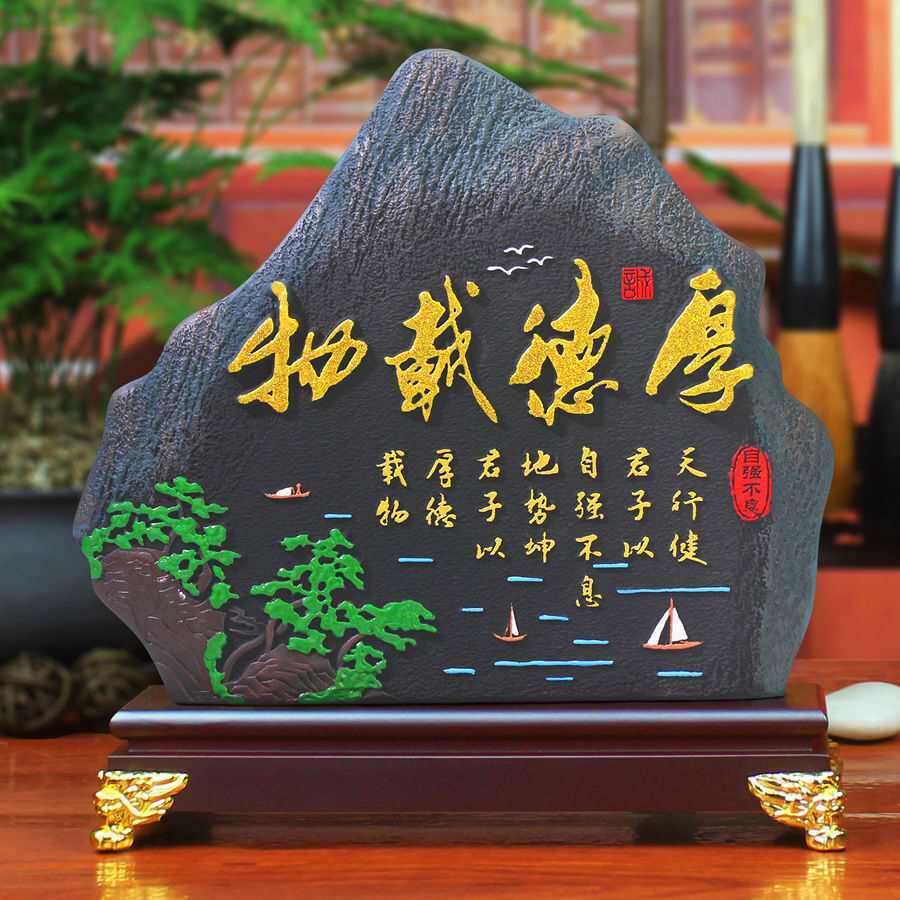 厚德載物
誠
自强不息
天行健
君子以
自强不息
地势坤
君子以
厚德
载物